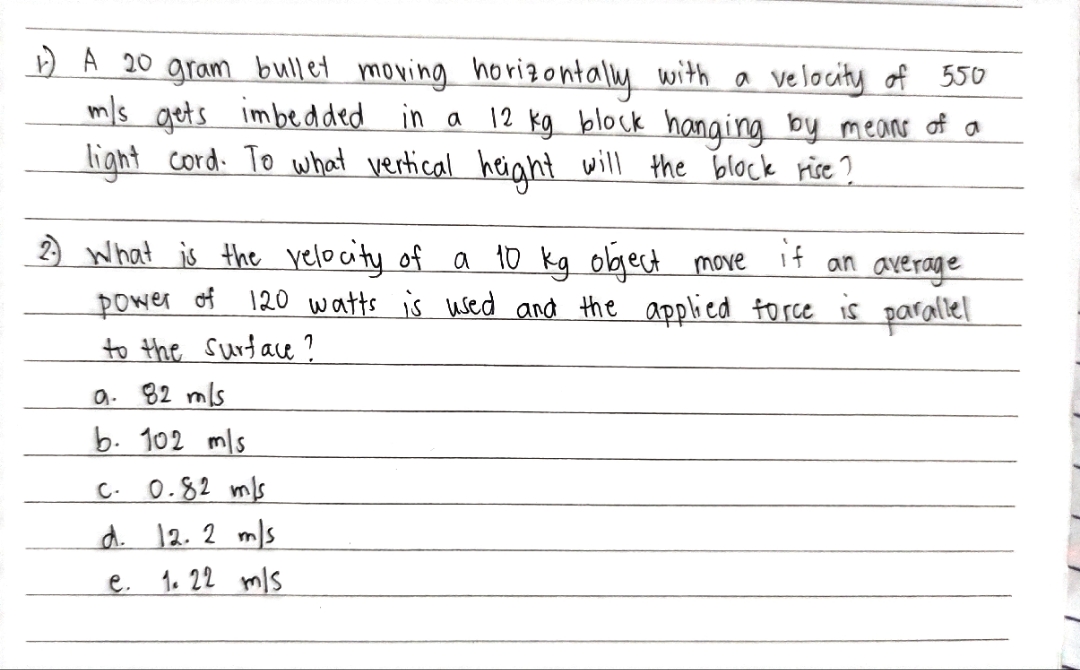 1.) A 20 gram bullet moving horizontally with a velocity of 550
m/s gets imbedded in a 12 kg block hanging by means of a
light cord. To what vertical height will the block rise?
2.) What is the velocity of a 10 kg object move if an average
power of 120 watts is used and the applied force is parallel
to the surface?
a. 82 m/s
b. 102 m/s
c. 0.82 m/s
d. 12.2 m/s
e. 1.22 m/s